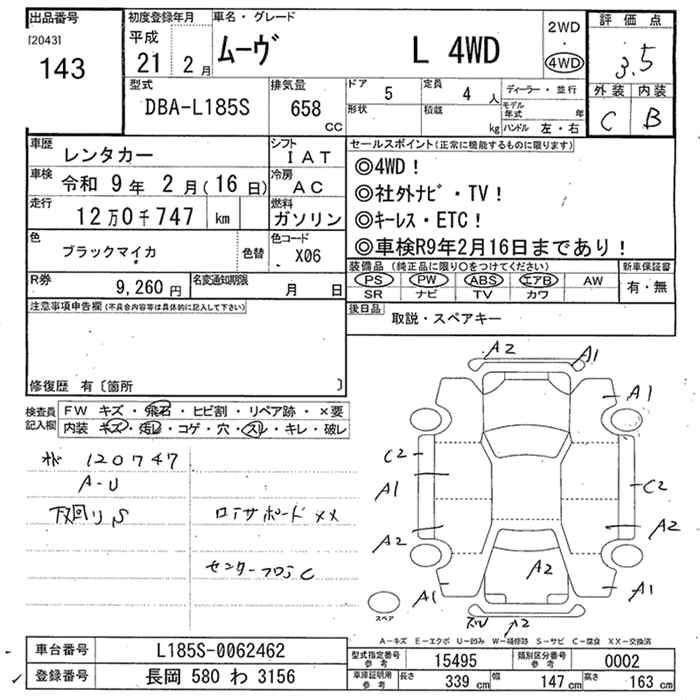 出品番号
[2043]
143
初度登録年月
平成
21 2月
車名・グレード
ムーヴ L 4WD
2WD
・
4WD
評価点
3.5
外装 内装
C B
型式
DBA-L185S
排気量
658
cc
ドア
5
定員
4 人
形状
積載
kg
ディーラー・並行
モデル年式 年
ハンドル 左・右
車歴
レンタカー
シフト
IAT
車検
令和 9年 2月(16日)
冷房
AC
走行
12万0千747 km
燃料
ガソリン
色
ブラックマイカ
色替
色コード
X06
R券
9,260円
名変通知期限
月 日
セールスポイント(正常に機能するものに限ります)
◎4WD!
◎社外ナビ・TV!
◎キーレス・ETC!
◎車検R9年2月16日まであり!
装備品(純正品に限り○をつけてください)
新車保証書
PS PW ABS エアB AW
有・無
SR ナビ TV カワ
後日品
取説・スペアキー
注意事項申告欄(不具合内容等は具体的に記入して下さい)
修復歴 有〔箇所 〕
検査員記入欄
FW キズ・飛石・ヒビ割・リペア跡・×要
内装 キズ・汚れ・コゲ・穴・スレ・キレ・破レ
120747
A-U
下回りS
ロアサポード XX
センターフロアC
A2
A1
A1
C2
A1
C2
A2
A2
A2
A1
A1
A2
スペア
A-キズ E-エクボ U-凹み W-補修跡 S-サビ C-腐食 XX-交換済
車台番号
L185S-0062462
登録番号
長岡 580 わ 3156
型式指定番号
参考
15495
類別区分番号
参考
0002
車庫証明用
参考
長さ 339 cm
幅 147 cm
高さ 163 cm